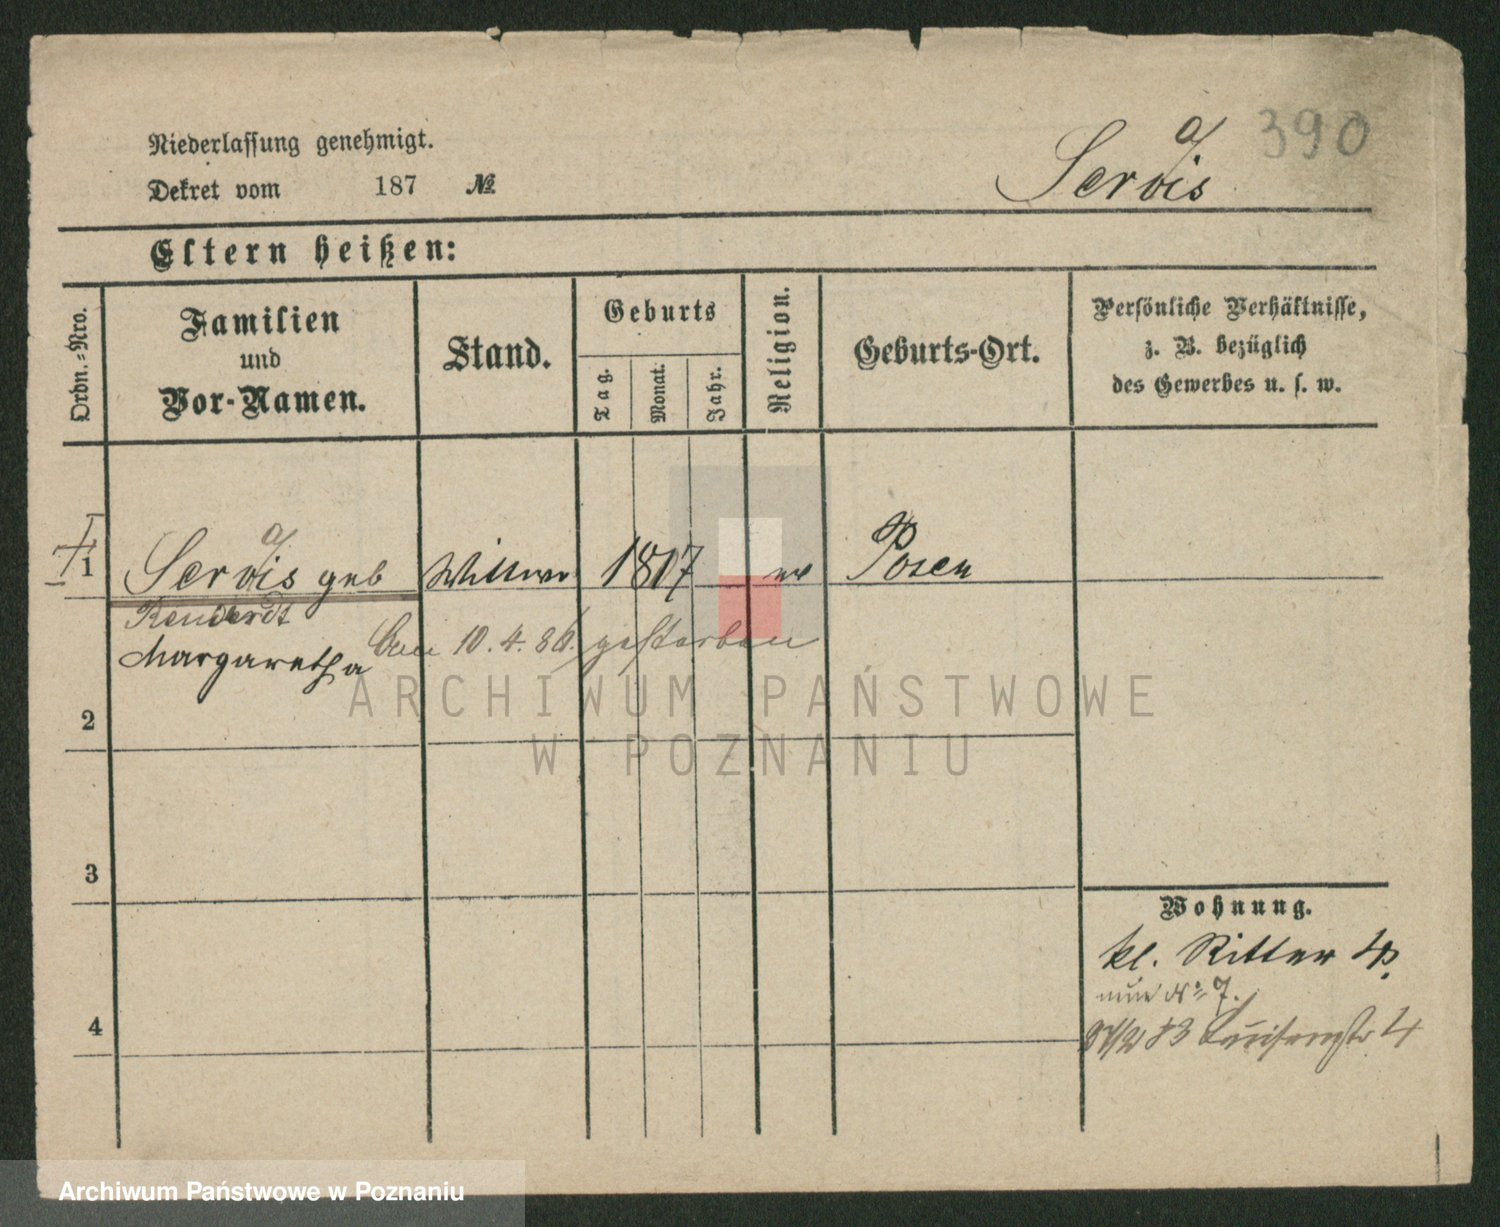 390
a/
Servis
Niederlassung genehmigt.
Dekret vom 187 №
Eltern heißen:
Ordn.-Nro.
Familien
und
Vor-Namen.
Stand.
Geburts
Tag.
Monat.
Jahr.
Religion.
Geburts-Ort.
Persönliche Verhältnisse,
z. B. bezüglich
des Gewerbes u. s. w.
a/
1 Servis geb Wittwe 1807 ev Posen
Margaretha
10. 4. 86. gestorben
2
3
4
Wohnung.
kl. Ritter 4.
nun No 7.
83 Louisenstr 4
ARCHIWUM PAŃSTWOWE
W POZNANIU
Archiwum Państwowe w Poznaniu